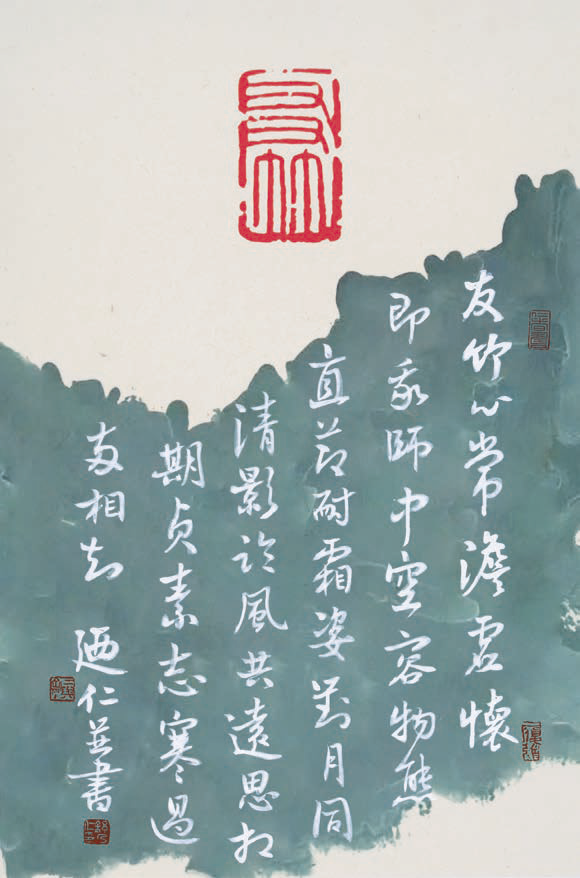 友竹
友竹心常澹虛懷
即我師中空容物態
直節耐霜姿對月同
清影臨風共遠思相
期貞素志寒過
兩相知 迺仁並書